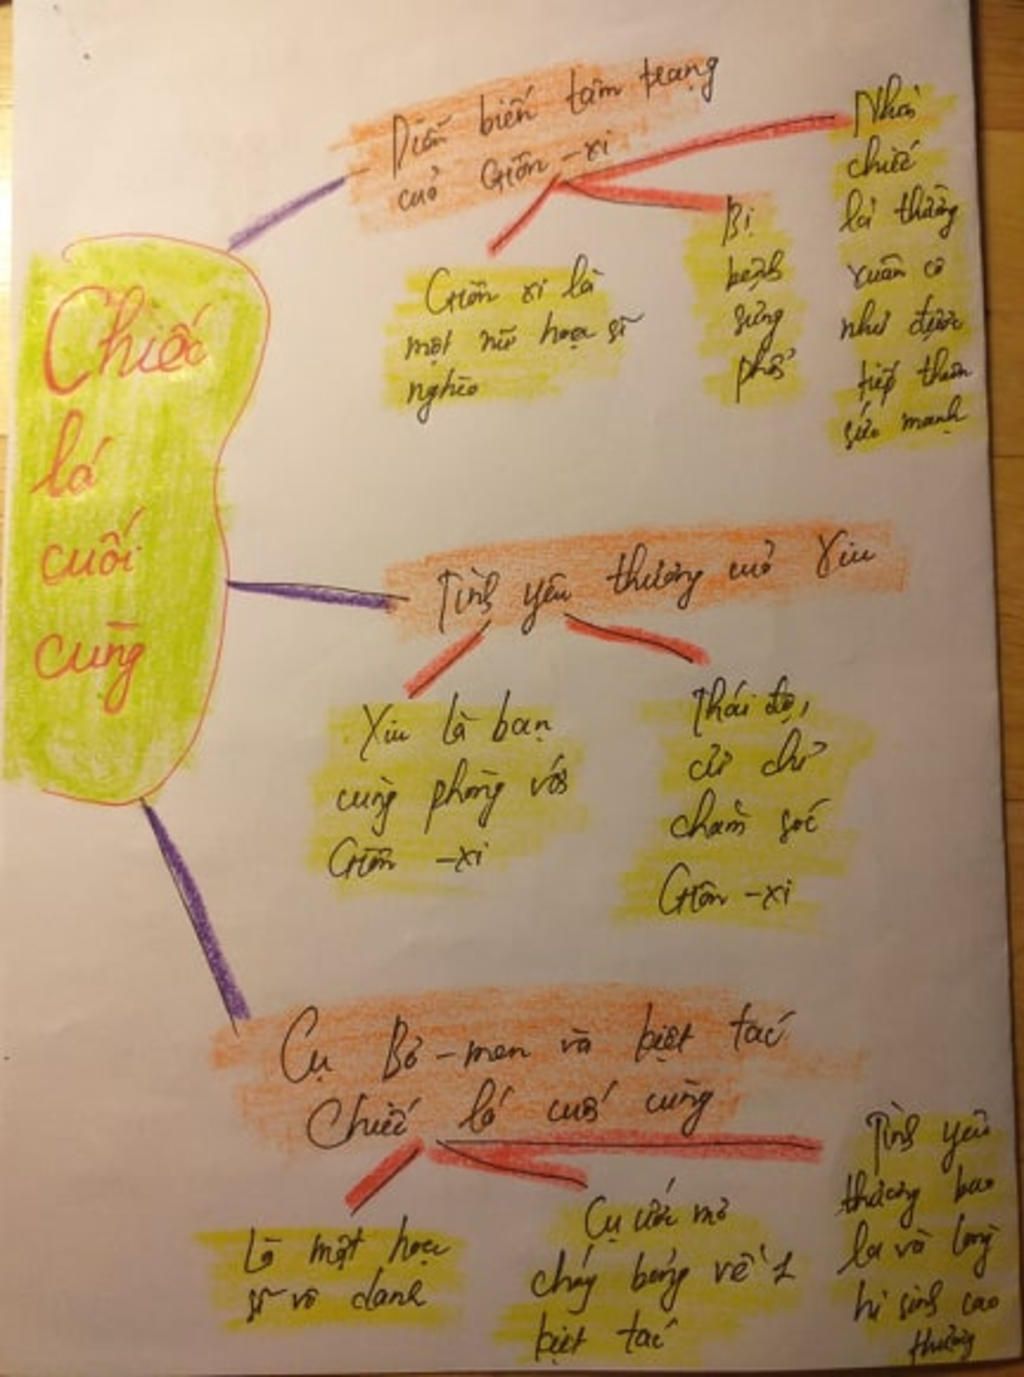 Chiếc
lá
cuối
cùng
Diễn biến tâm trạng
của Giôn-xi
Giôn xi là
một nữ họa sĩ
nghèo
Bị
bệnh
sưng
phổi
Nhìn
chiếc
lá thường
xuân cô
như được
tiếp thêm
sức mạnh
Tình yêu thương của Xiu
Xiu là bạn
cùng phòng với
Giôn-xi
Thái độ,
cử chỉ
chăm sóc
Giôn-xi
Cụ Bơ-men và kiệt tác
Chiếc lá cuối cùng
Là một họa
sĩ vô danh
Cụ ước mơ
cháy bỏng về 1
kiệt tác
Tình yêu
thương bao
la và lòng
hi sinh cao
thượng